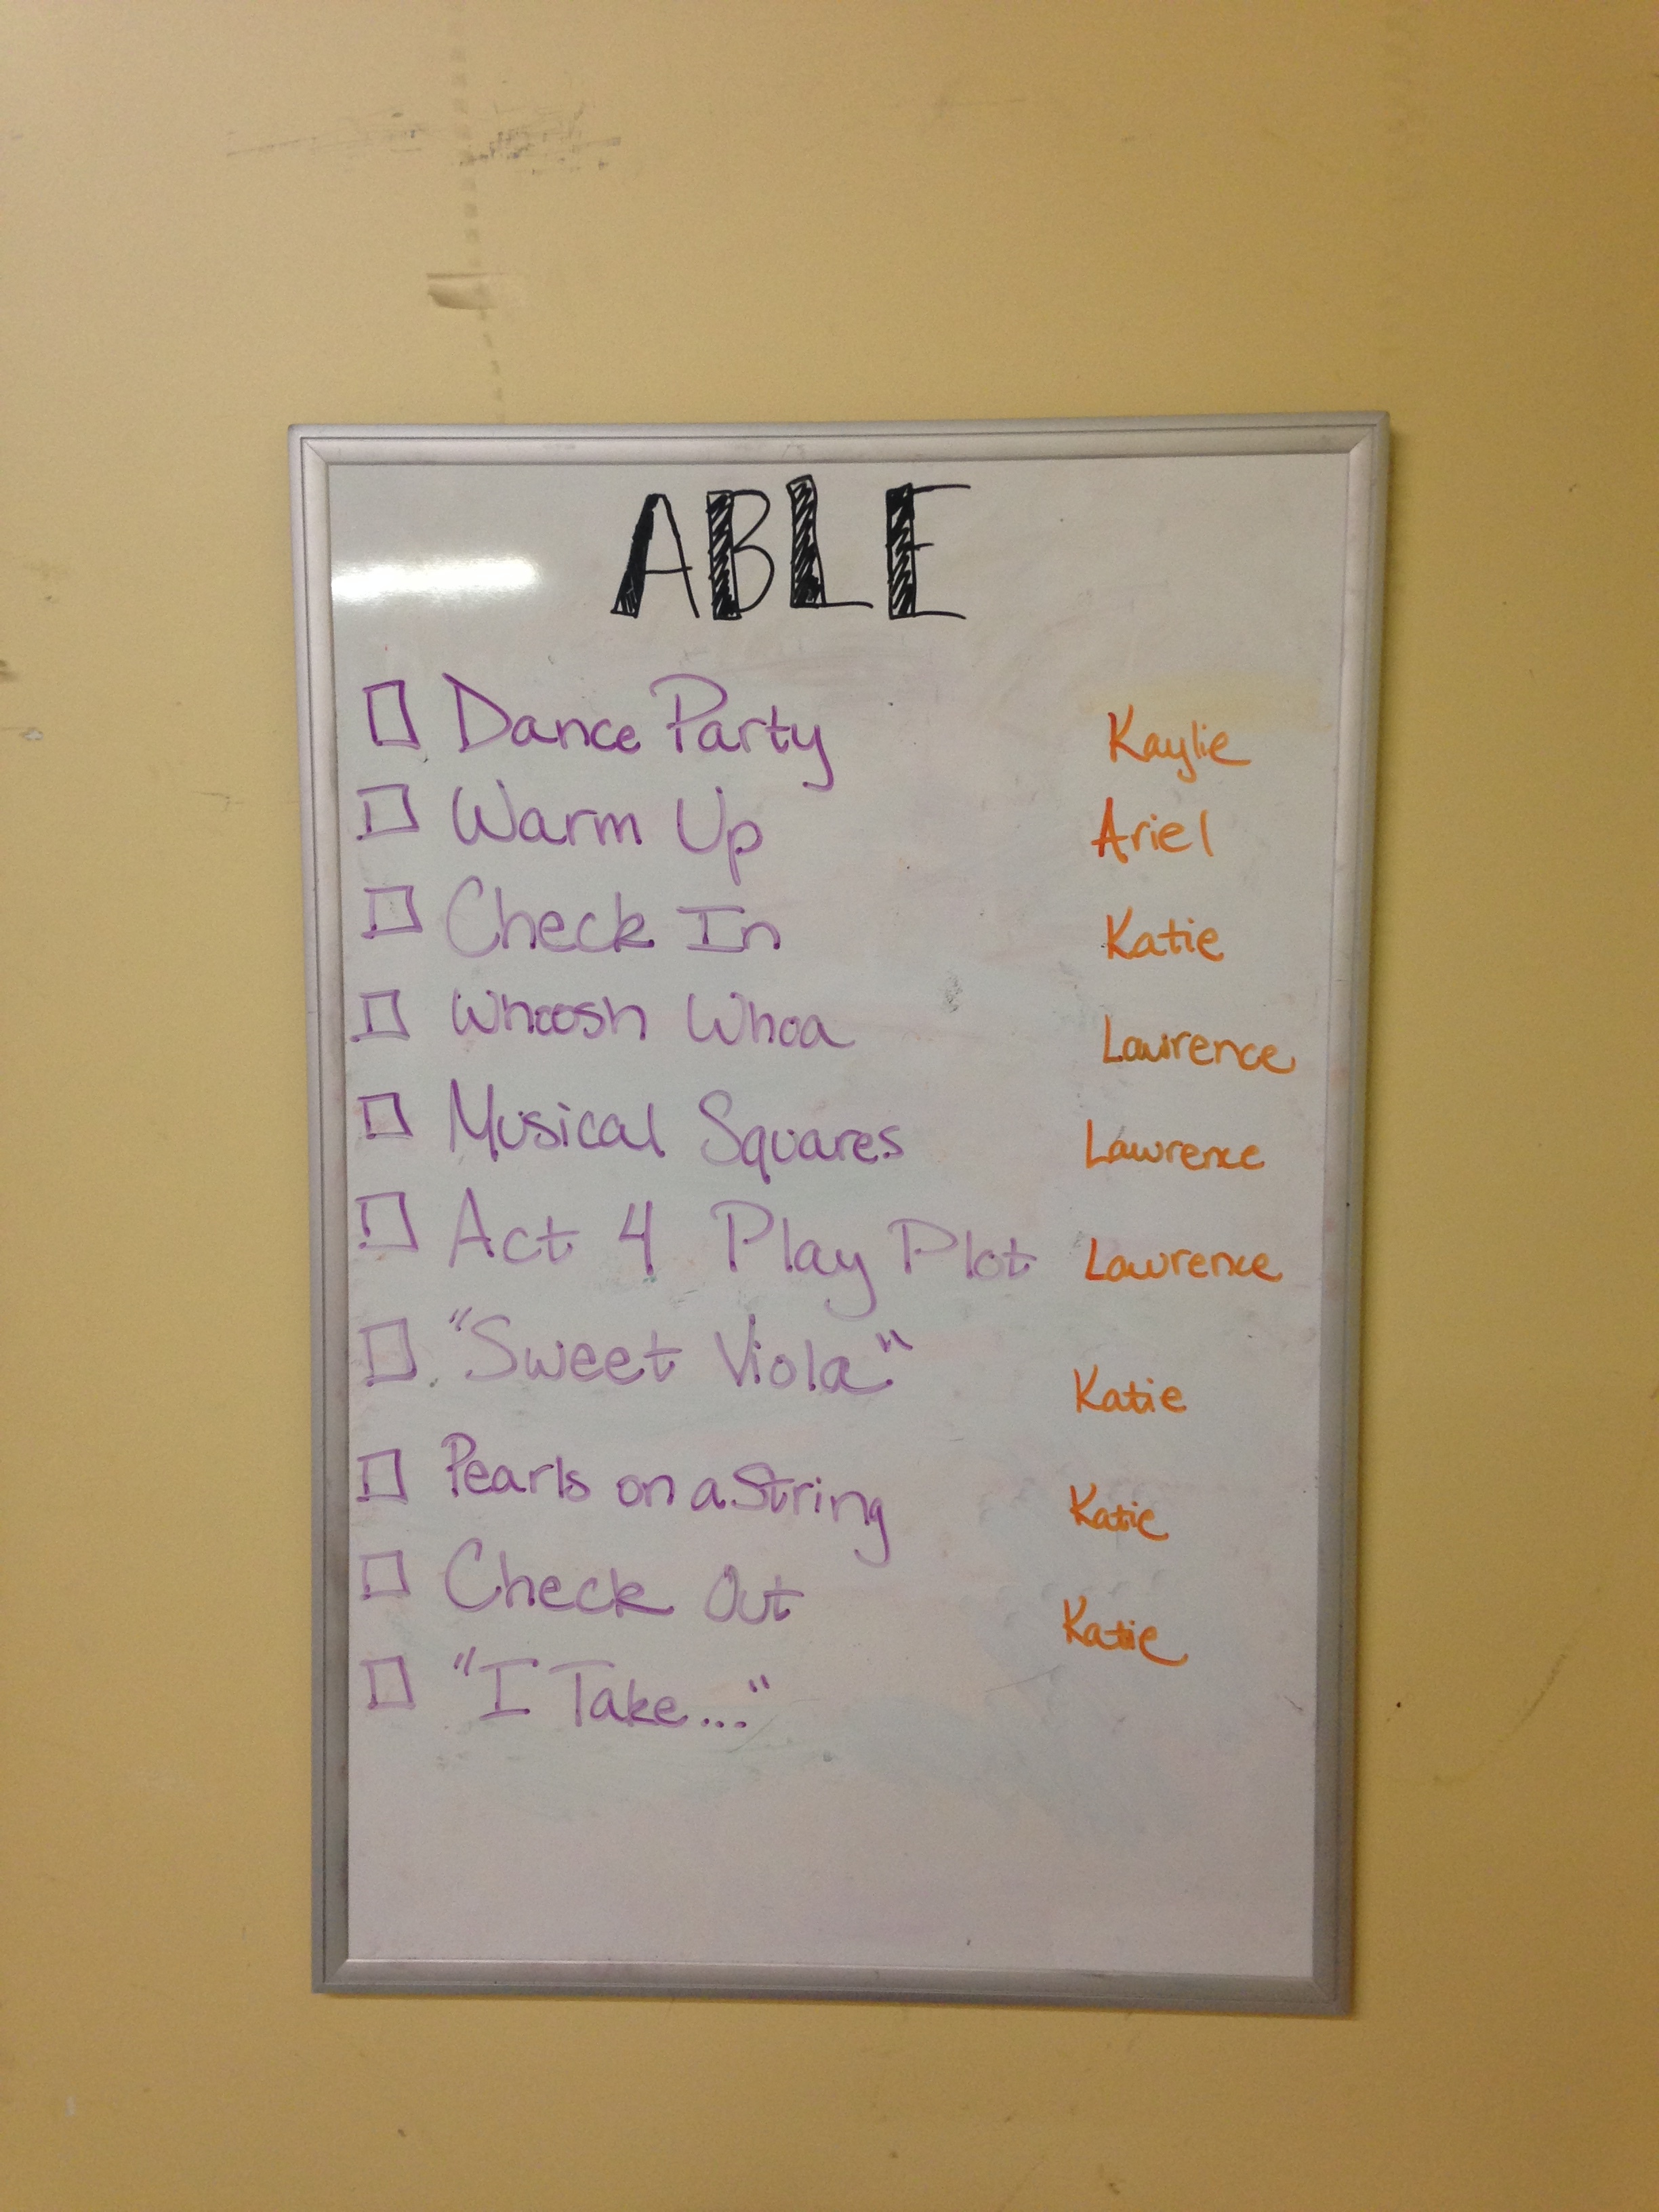 ABLE
Dance Party Kaylie
Warm Up Ariel
Check In Katie
Whoosh Whoa Lawrence
Musical Squares Lawrence
Act 4 Play Plot Lawrence
"Sweet Viola" Katie
Pearls on a String Katie
Check Out Katie
"I Take..."